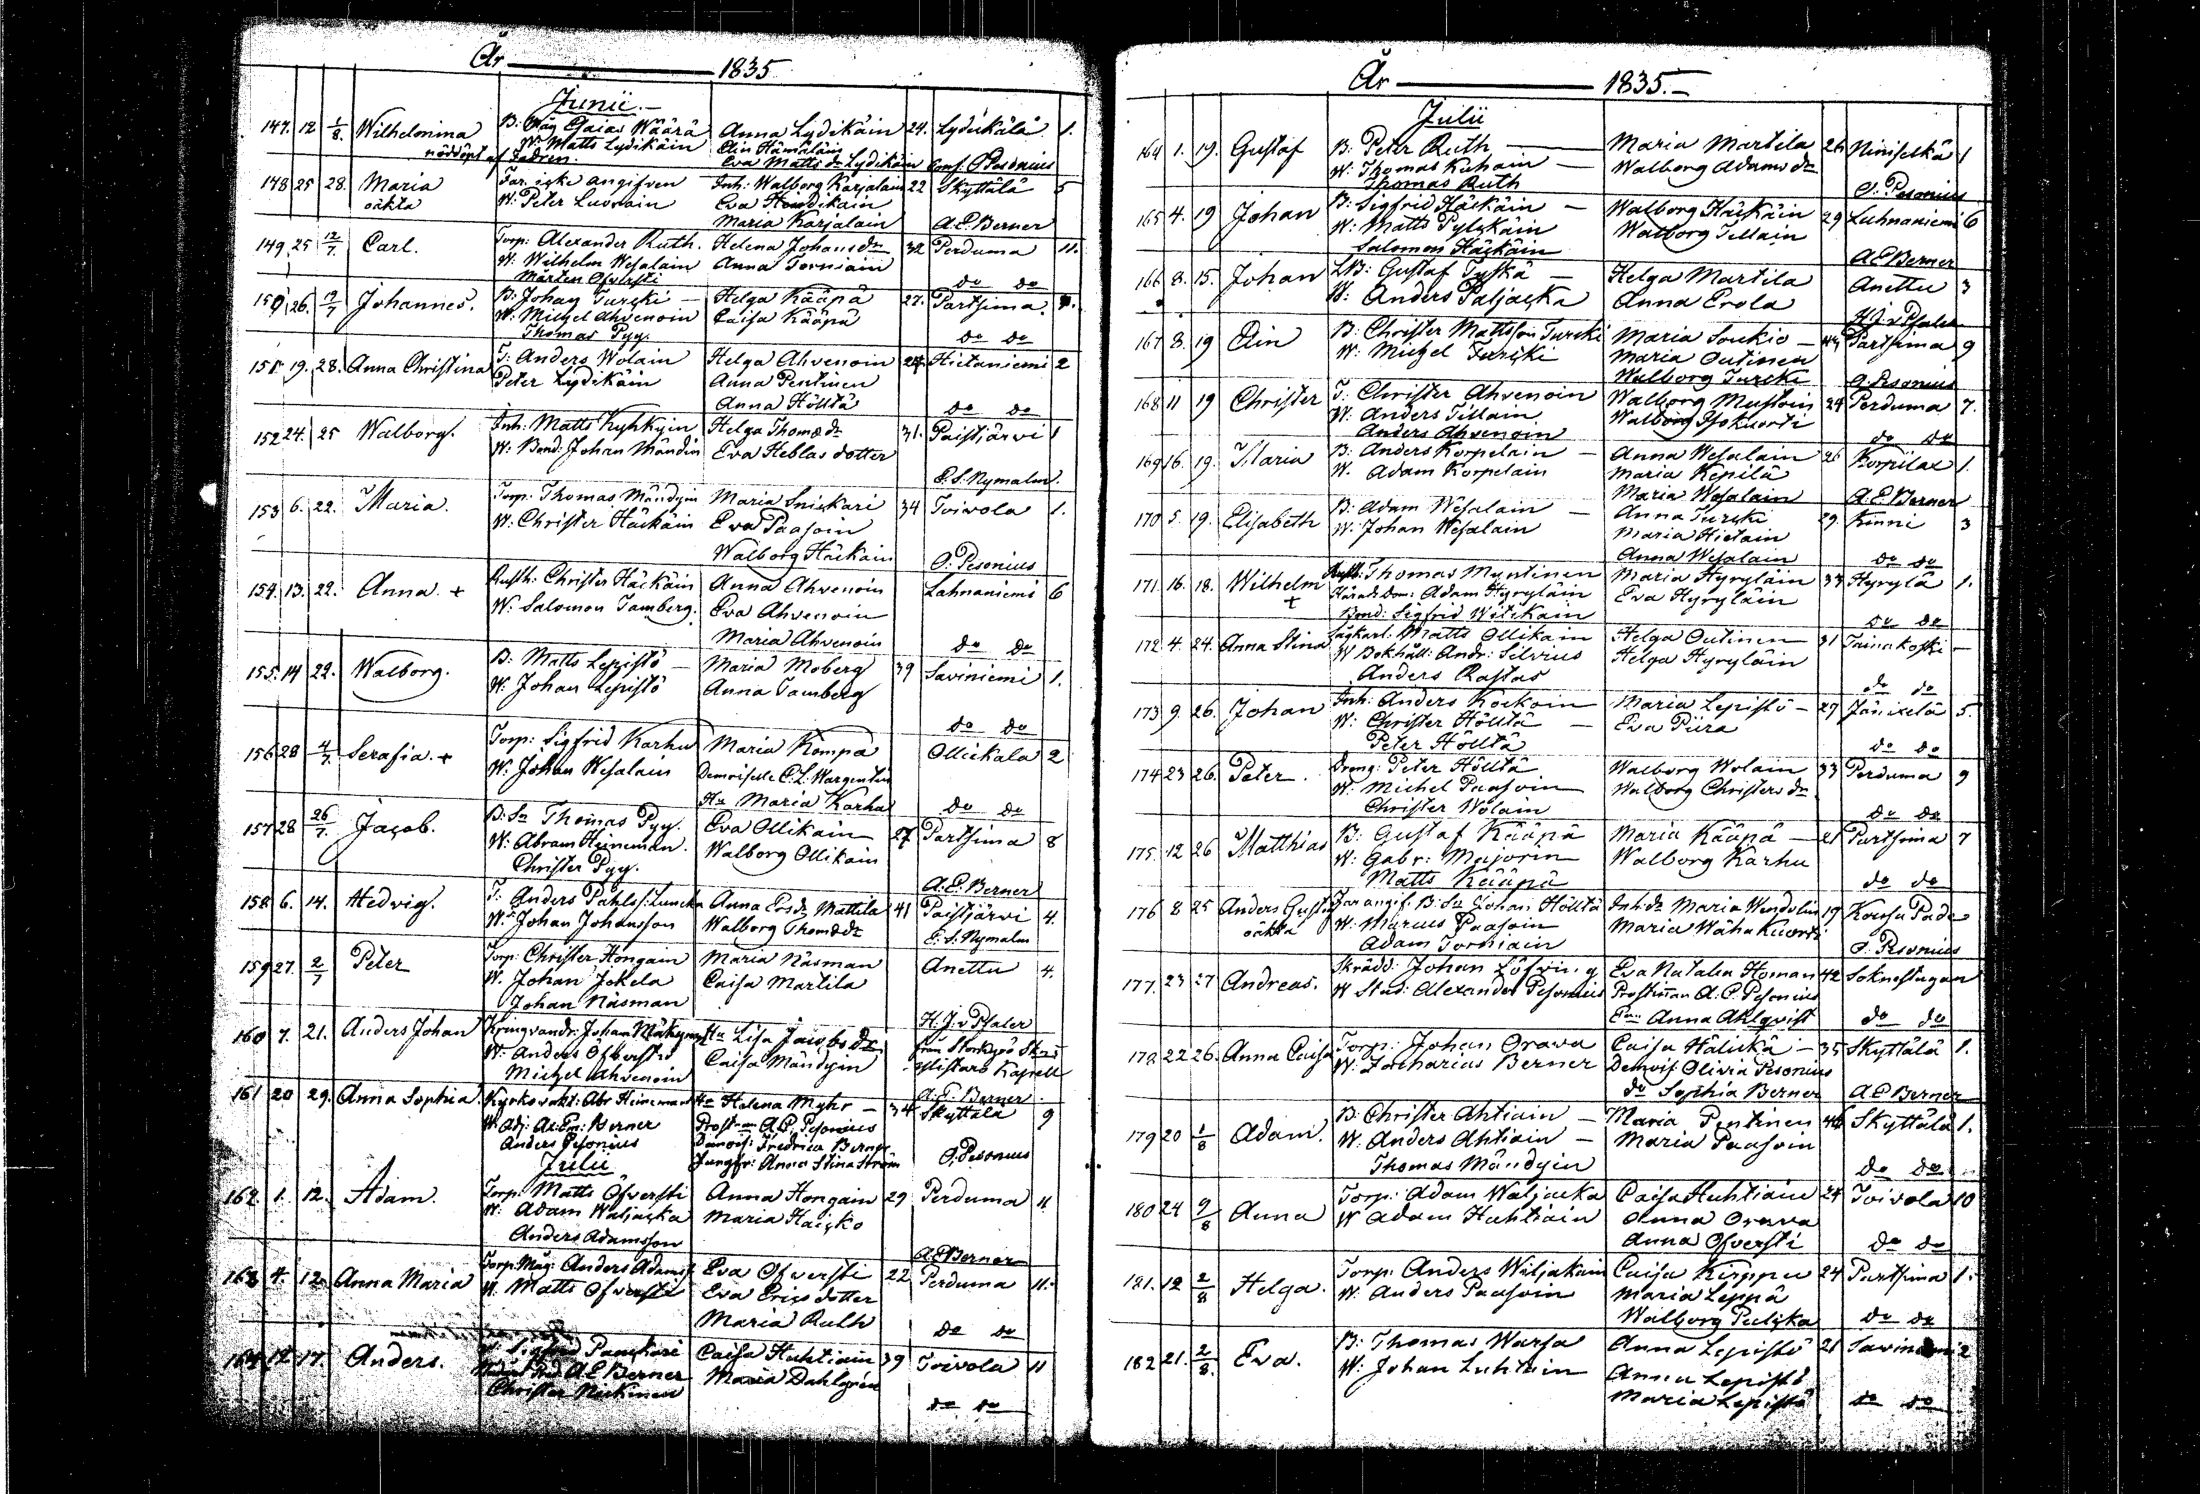 År 1835
Junii.
147. 12 1/8. Wilhelmina B: Måg Esaias Wäärä Anna Lydikäin 24. Lydikälä 1.
W: Matts Lydikäin Elin Hämäläin
nöddöpt af Fadren. Eva Matts dr Lydikäin Conf. O Pesonius
148 25 28. Maria Far icke angifven Inh: Walborg Karjalain 22 Skyttälä 5
oäkta W: Peter Luvain Eva
Maria Karjalain A.E. Berner
149. 25 12/7. Carl. Torp: Alexander Ruth. Helena Johans dr 32 Perduma 11.
W: Wilhelm Wesalain Anna Torniain
Mårten Öfversti do do
150. 26. 12/7 Johannes. B: Johan Turcki Helga Kääpä 27. Partsima
W: Michel Ahvenoin Caisa Kääpä
Thomas Pyy. do do
151. 19. 28. Anna Christina T: Anders Wolain Helga Ahvenoin 24. Hietaniemi 2
Peter Lydikäin Anna Pentinen
Anna Hölttä do do
152 24. 25 Walborg. Inh: Matts Kyhkyin Helga Thomæ dr 31. Paistjärvi 1
W: Bond: Johan Mändin Eva Heblas dotter
E. S. Nymalm.
153 6. 22. Maria. Torp: Thomas Mändyin Maria Snickari 34 Toivola 1.
W: Christer Häckäin Eva Paasoin
Walborg Häckäin O. Pesonius
154. 13. 22. Anna. + Rusth: Christer Häckäin Anna Ahvenoin Lahnaniemi 6
W: Salomon Tamberg. Eva Ahvenoin
Maria Ahvenoin do do
155. 14 22. Walborg. B: Matts Lepistö Maria Moberg 39 Saviniemi 1.
W: Johan Lepistö Anna Tamberg
do do
156 28 4/7 Serafia. + Torp: Sigfrid Karhu Maria Kompa Ollickala 2
W: Johan Wesalain Demoiselle C. L. Wargentin
Hu Maria Karhu do do
157 28 26/7. Jacob. B: Sn Thomas Pyy. Eva Ollikain 27 Partsima 8
W: Abram Heineman. Walborg Ollikain
Christer Pyy. A. E. Berner
158 6. 14. Hedvig. T: Anders Påhls: Anna Ers dr Mattila 41 Paistjärvi 4.
W: Johan Johansson Walborg Thomæ dr E. S. Nymalm
159 27. 2/7 Peter Torp: Christer Hongain Maria Näsman Anettu 4.
W. Johan Jokela Caisa Martila
Johan Näsman H. J. v Pfaler
160 7. 21. Anders Johan Kringvandr: Johan Hu Lisa Jacobs dr från Storkyrö
W: Anders Öfversti Caisa Mändyin Ylistaro Kapell
Michel Ahvenoin A. E. Berner
161 20 29. Anna Sophia. Kyrkovakt: Abr Heineman Hu Helena Myhr 34 Skyttälä 9
W: Adj: Al: Em: Berner Prostinnan A. C. Pesonius
Anders Pesonius Demois: Fredrica Berner
Jungfr: Anna Stina Ström O. Pesonius
Julii
162. 1. 12. Adam. Torp: Matts Öfversti Anna Hongain 29 Perduma 11
W: Adam Waljacka Maria Haicko
Anders Adamsson A E Berner
163 4. 12 Anna Maria Torp: Måg: Anders Adamss Eva Öfversti 22 Perduma 11.
W. Matts Öfversti Eva Erics dotter
Maria Ruth do do
17. Anders. Sigfrid Caisa Huhtiain 39 Toivola 11
A E Berner Maria Dahlgrén
Christer Nickinen do do
År 1835.
Julii
164 1. 19. Gustaf B: Peter Ruth Maria Martila 26 Niniselkä 1
W: Thomas Kuhain Walborg Adams dr
Thomas Ruth O. Pesonius
165 4. 19 Johan B: Sigfrid Häckäin Walborg Häckäin 29 Luhnaniemi 6
W: Matts Pylckäin Walborg Tillain
Salomon Häckäin A E Berner
166 8. 15. Johan LB: Gustaf Tyskä Helga Martila Anettu 3
W: Anders Paljacka Anna Erola
H J. v Pfaler
167 8. 19 Elin B: Christer Mattsson Turcki Maria Soukio 44 Partsima 9
W: Michel Turcki Maria Outinen
Walborg Turcki O. Pesonius
168 11 19 Christer T: Christer Ahvenoin Walborg Mustoin 24 Perduma 7.
W: Anders Tillain Walborg
Anders Ahvenoin do do
169 16. 19. Maria B: Anders Korpelain Anna Wesalain 26 Korpilax 1.
W. Adam Korpelain Maria Kepilä
Maria Wesalain A. E. Berner
170 5. 19. Elisabeth B: Adam Wesalain Anna Turcki 29. Kinni 3
W: Johan Wesalain Maria Hietain
Anna Wesalain do do
171 16. 18. Wilhelm + Rusth: Thomas Myntinen Maria Hyryläin 33 Hyrylä 1.
Härads Dom: Adam Hyryläin Eva Hyryläin
Bond: Sigfrid Witikain do do
172 4. 24. Anna Stina Sågkarl: Matts Ollikain Helga Outinen 31 Tainakoski
W Bokhåll: Andr: Silvius Helga Hyryläin
Anders Rastas do do
173 9. 26. Johan Inh: Anders Kockoin Maria Lepistö 27 Jänickälä 5.
W: Christer Hölttä Eva Piira
Peter Hölttä do do
174 23 26. Peter. Dräng: Peter Hölttä Walborg Wolain 33 Perduma 9
W. Michel Paasoin Walborg Christers dr
Christer Wolain do do
175 12 26 Matthias B: Gustaf Kääpä Maria Kääpä 21 Partsima 7
W: Gabr: Majorin Walborg Karhu
Matts Kääpä do do
176 8 25 Anders Gustaf Far angif: B: Sn Johan Hölttä Inh: dr Maria Wendelin 19 Kousa
oäkta W: Marcus Paasoin Maria
Adam Torniain O. Pesonius
177. 23 27 Andreas. Skrädd: Johan Löfving Eva Natalia Homan 42 Soknestugan
W Stud: Alexander Pesonius Prostinnan A. C. Pesonius
Anna Ahlqvist do do
178 22 26. Anna Caisa Torp: Johan Orava Caisa Hälickä 35 Skyttälä 1.
W: Zacharias Berner Demois: Olivia Pesonius
do Sophia Berner A E Berner
179 20 1/8 Adam. B: Christer Ahtiain Maria Pentinen 44 Skyttälä 1.
W. Anders Ahtiain Maria Paasoin
Thomas Mändyin do do
180 24 9/8 Anna Torp: Adam Waljacka Caisa Huhtiain 24 Toivola 10
W Adam Huhtiain Anna Orava
Anna Öfversti do do
181. 12 2/8 Helga. Torp: Anders Wäljakain Caisa Kirppu 24 Partsima 1.
W. Anders Paasoin Maria Leppä
Walborg Pulcka do do
182 21. 2/8. Eva. B: Thomas Warsa Anna Lepistö 21 Saviniemi 2
W: Johan Luhtain Anna Lepistö
Maria Lepistö do do